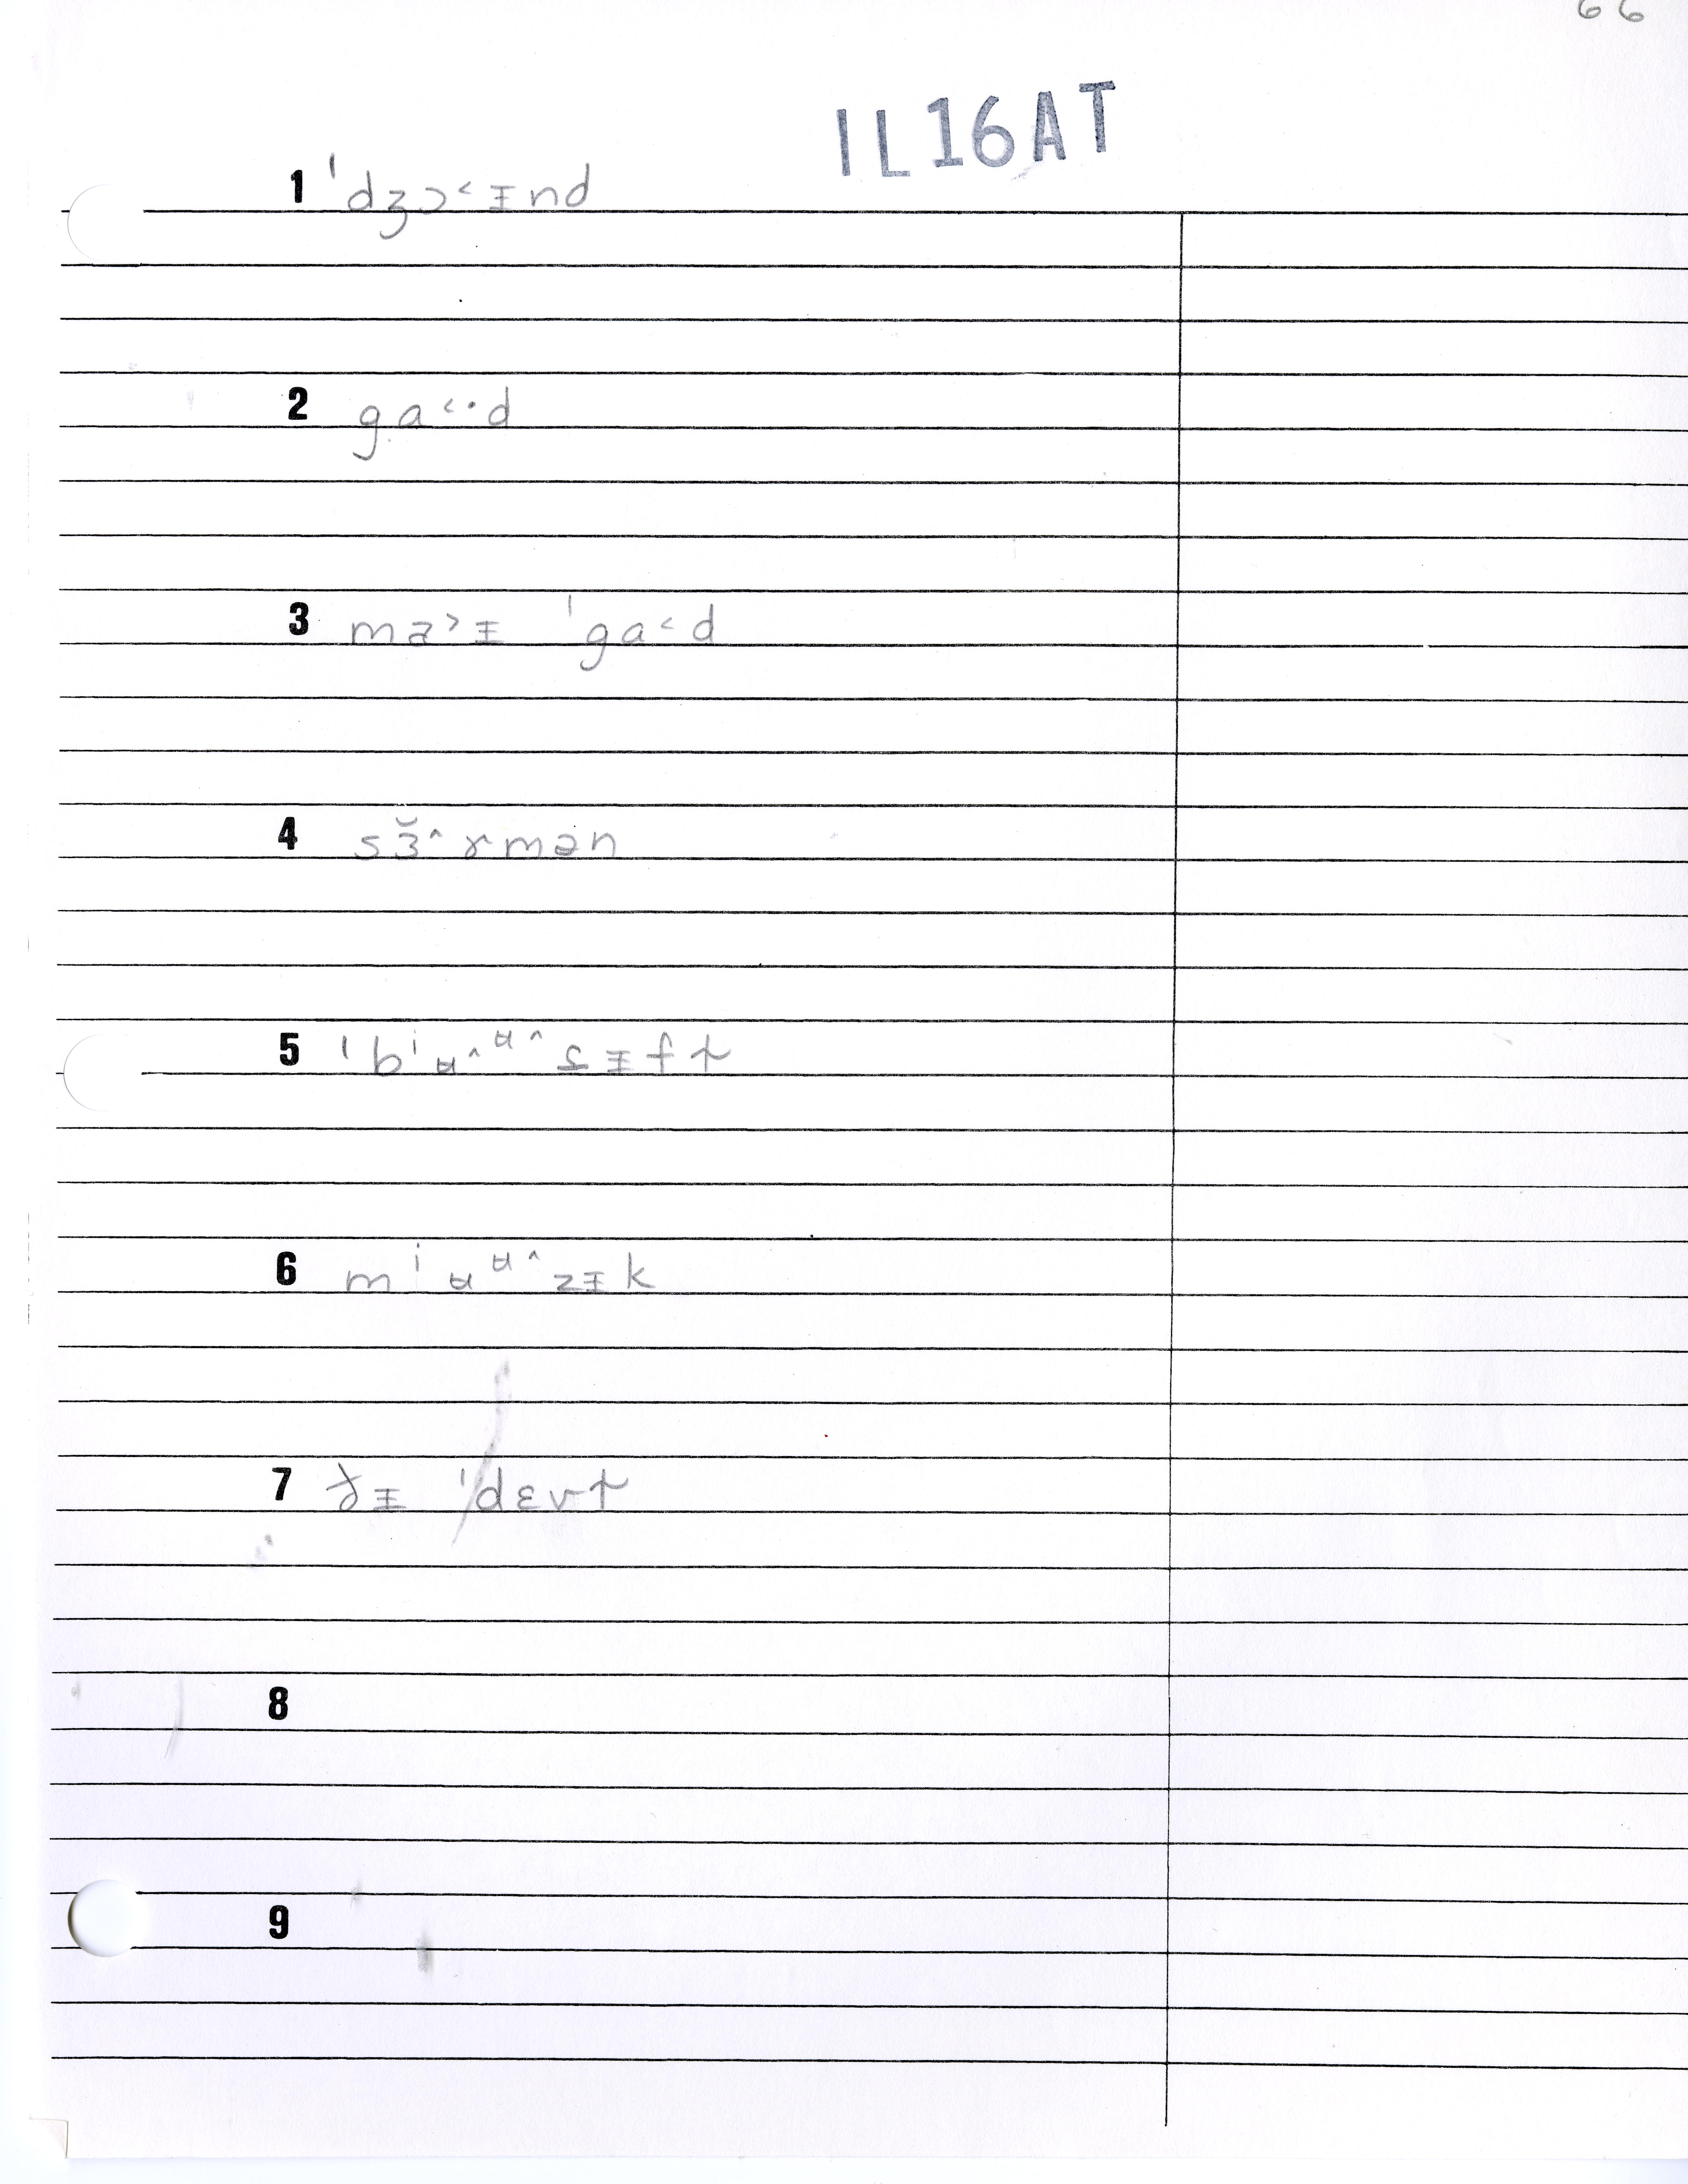 66
IL16AT
1 ˈdʒɔ˂ᵻnd
2 ga˂·d
3 ma˃ᵻ ˈga˂d
4 sɜ̆˄ɤmən
5 ˈbⁱʉ˄ᶶ˄s̬ᵻfɫ
6 mⁱʉᶶ˄zᵻk
7 ðᵻ ˈdɛvɫ
8
9